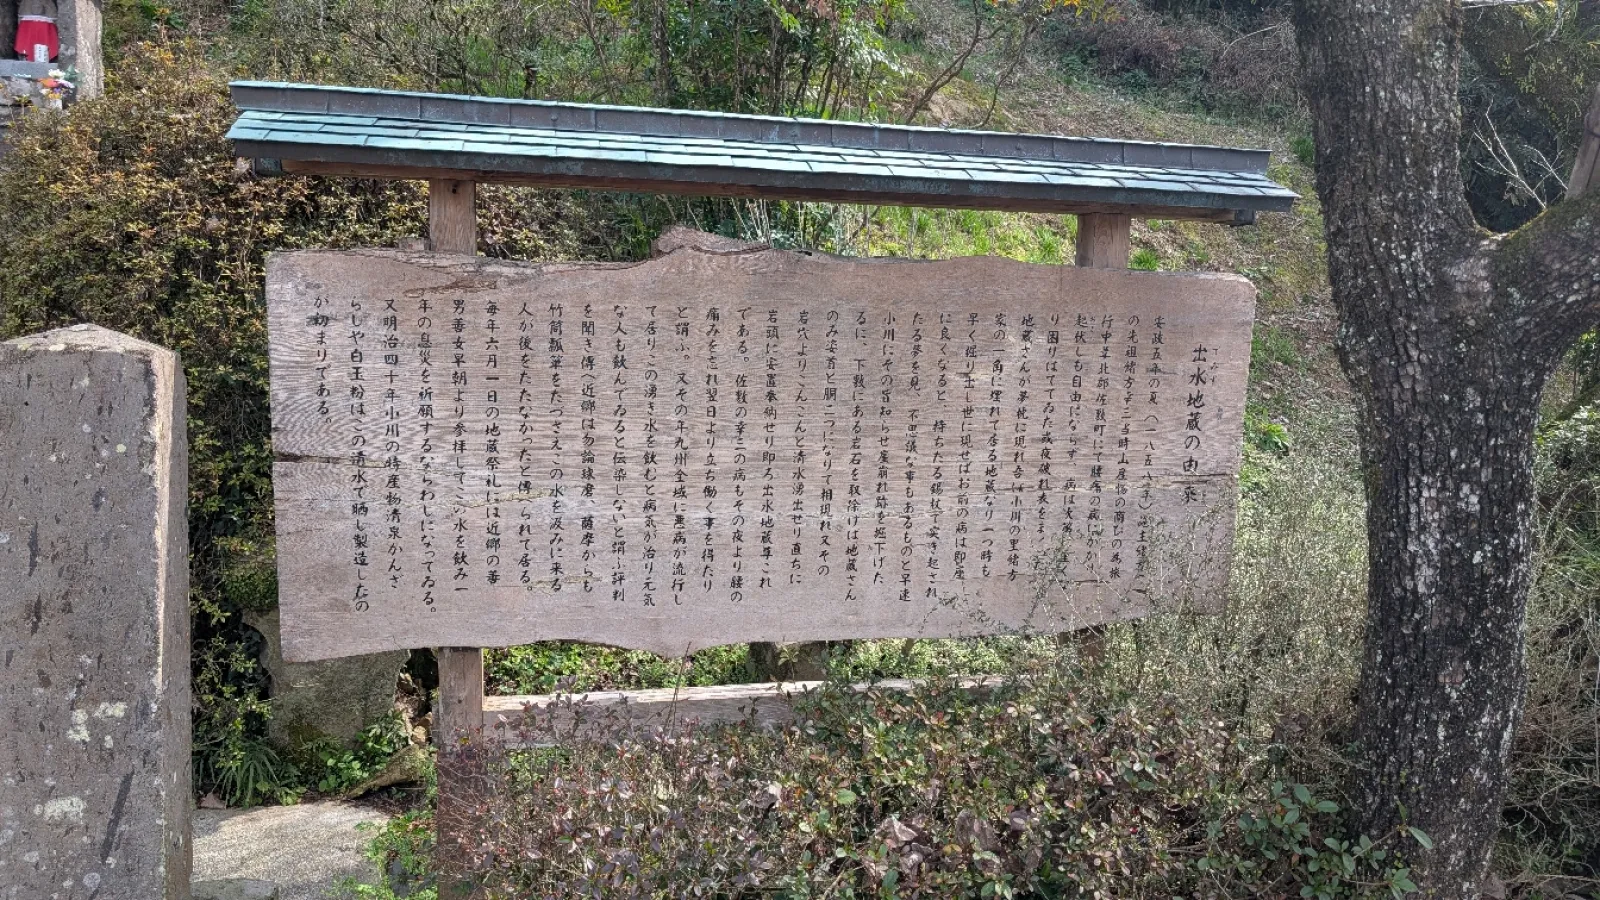 出水地蔵の由来
でみず
安政五年の夏(一八五八年)当主緒方
の先祖緒方幸三当時山産物の商いの為旅
行中葦北郡佐敷町にて腰痛の病にかかり
起伏しも自由にならず、病は次第に重
り困りはてゝゐた或夜破れ衣をま
地蔵さんが夢枕に現れ吾は小川の里緒方
家の一角に埋れて居る地蔵なり一つ時も
早く掘り出し世に現せばお前の病は即座
に良くなると 持ちたる錫杖で突き起され
たる夢を見、不思儀な事もあるものと早速
小川にその旨知らせ崖崩れ跡を掘下げた
るに、下敷にある岩石を取除けば地蔵さん
のみ姿首と胴二つになりて相現れ又その
岩穴よりこんこんと清水湧出せり直ちに
岩頭に安置奉納せり即ち出水地蔵尊これ
である。佐敷の幸三の病もその夜より腰の
痛みを忘れ翌日より立ち働く事を得たり
と謂ふ。又その年九州全域に悪病が流行し
て居りこの湧き水を飲むと病気が治り元気
な人も飲んでゐると伝染しないと謂ふ評判
を聞き傳へ近郷は勿論球磨、薩摩からも
竹筒瓢箪をたづさえこの水を汲みに来る
人が後をたたなかったと傳へられて居る。
毎年六月一日の地蔵祭礼には近郷の善
男善女早朝より参拝してこの水を飲み一
年の息災を祈願するならわしになってゐる。
又明治四十年小川の特産物清泉かんざ
らしや白玉粉はこの清水で晒し製造したの
が初まりである。